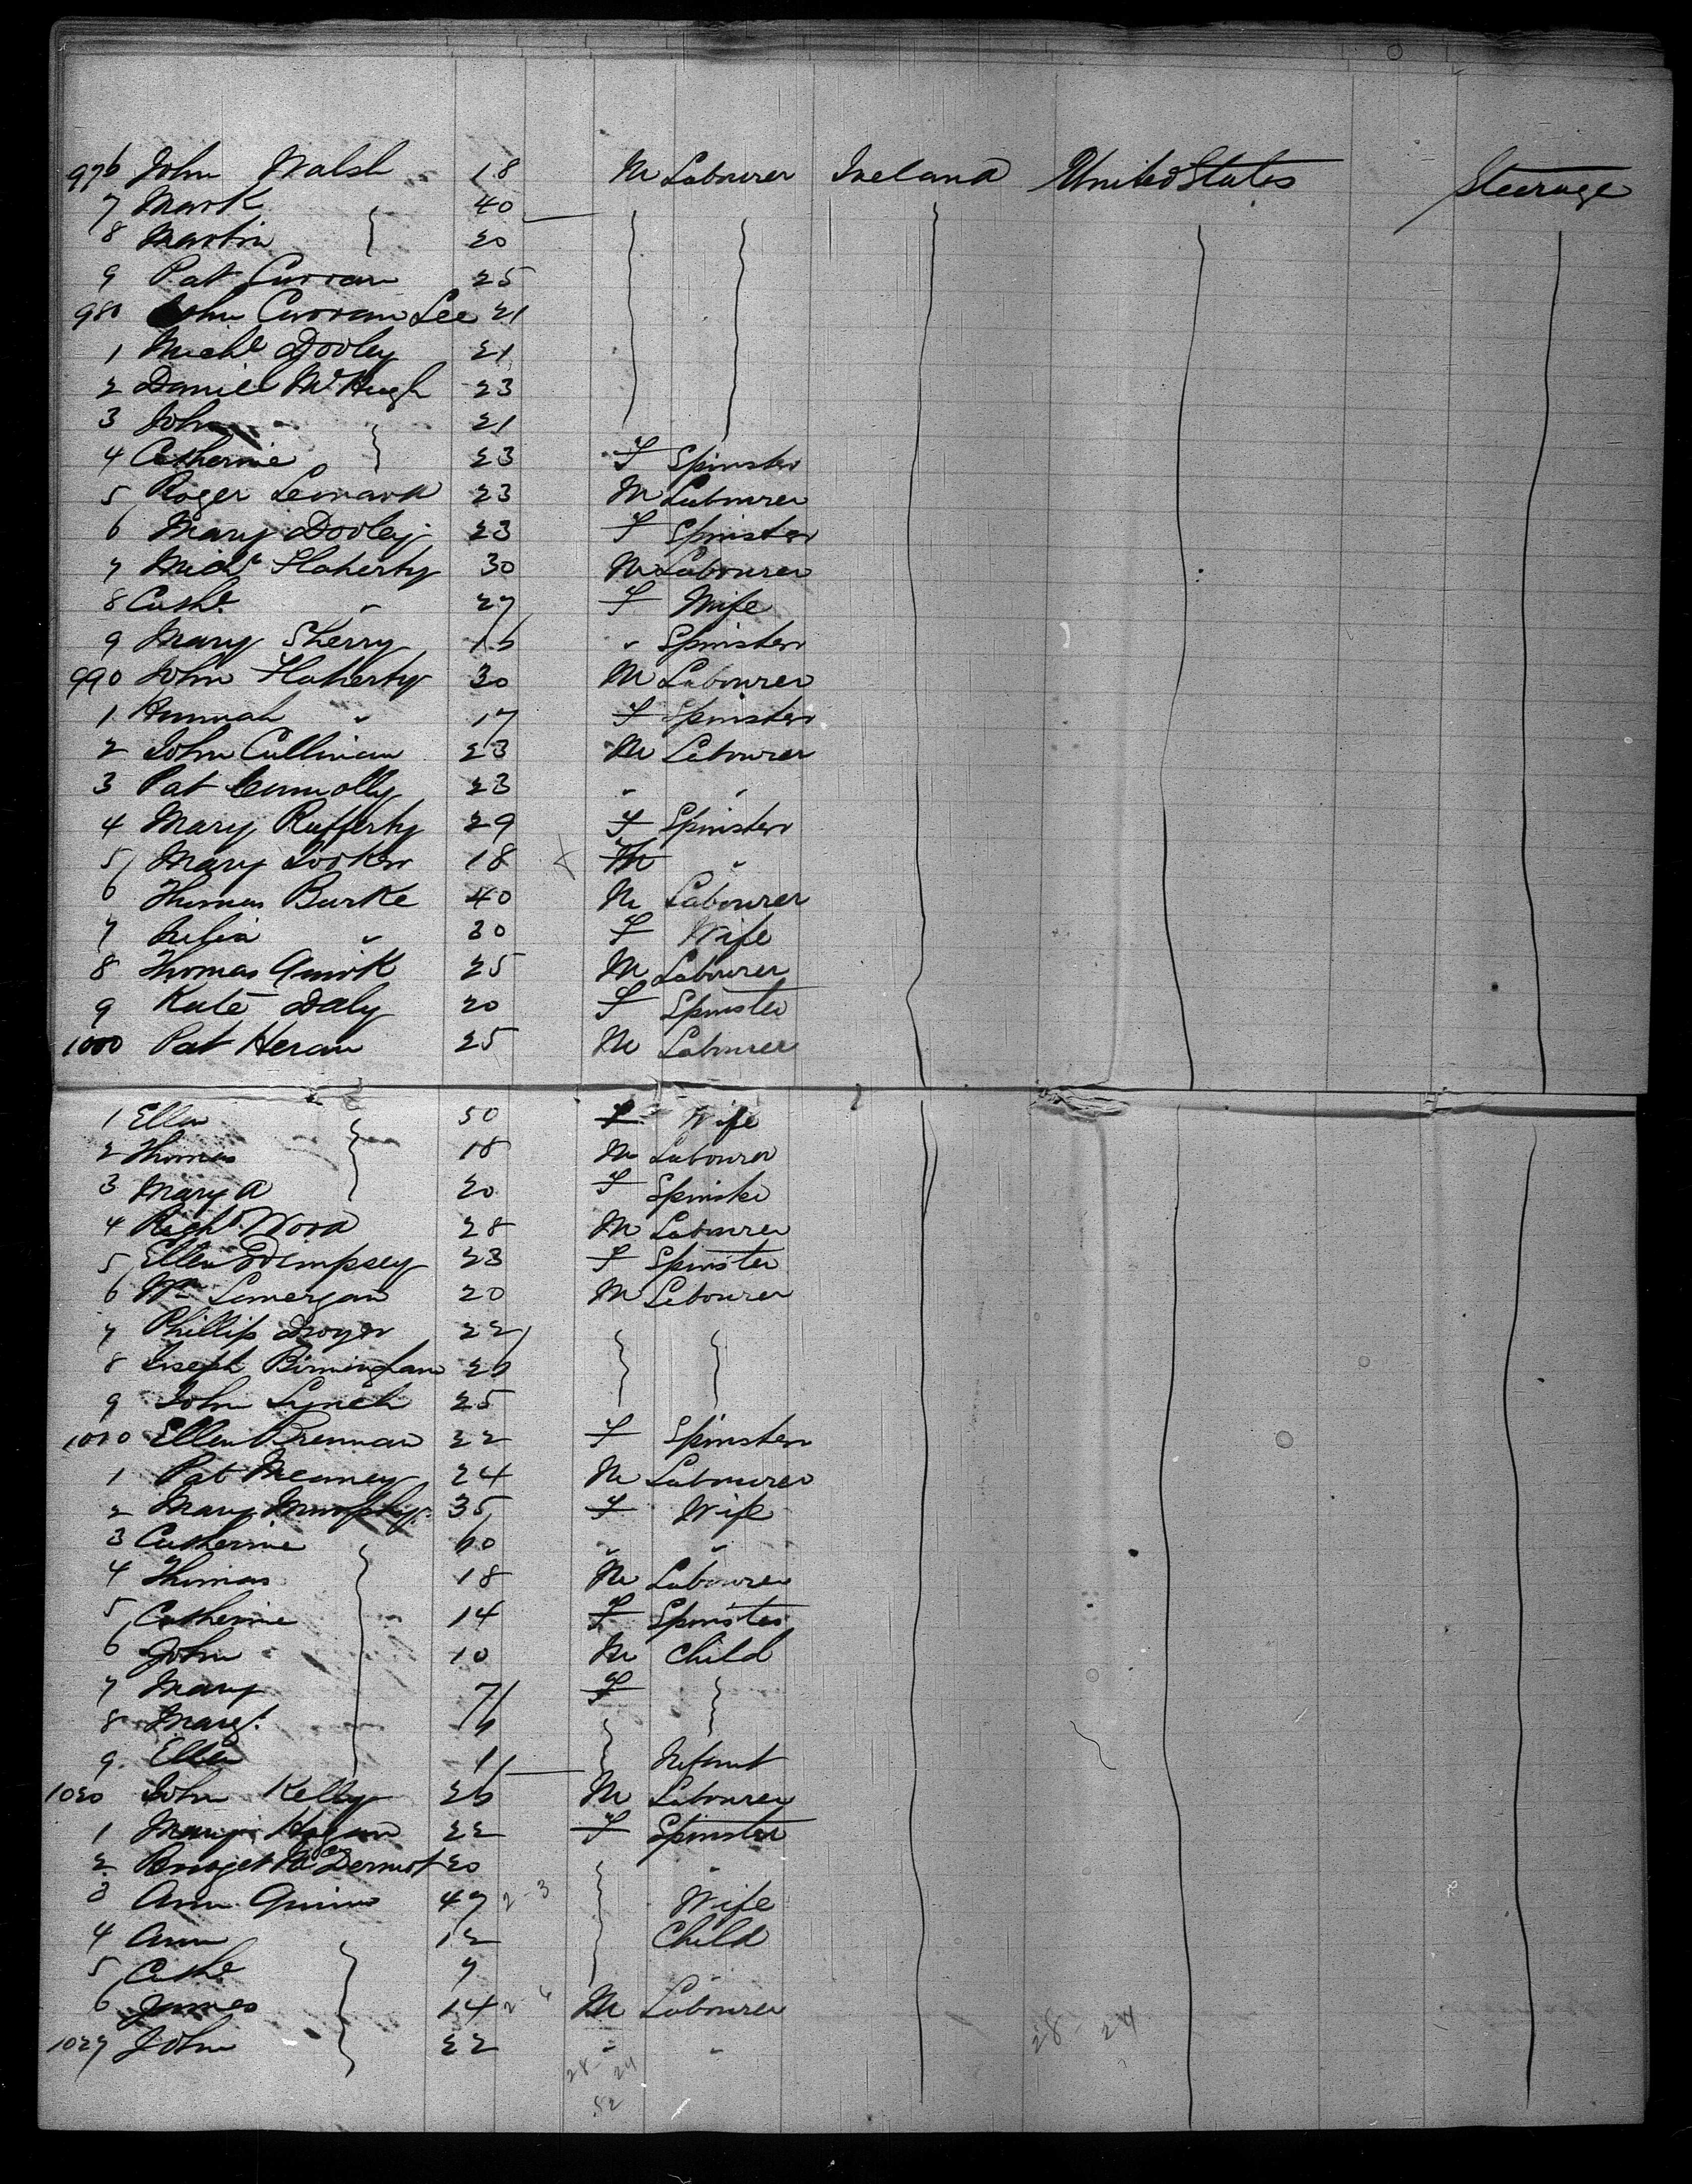 976 John Walsh 18 M Labourer Ireland United States Steerage
7 Mark 40
8 Martin 20
9 Pat Curran 25
980 John Curran Lee 21
1 Michl Dooley 21
2 Daniel McHugh 23
3 John 21
4 Catherine 23 F Spinster
5 Roger Leonard 23 M Labourer
6 Mary Dooley 23 F Spinster
7 Michl Flaherty 30 M Labourer
8 Cathe " 27 F Wife
9 Mary Sherry 16 " Spinster
990 John Flaherty 30 M Labourer
1 Hannah " 17 F Spinster
2 John Cullinan 23 M Labourer
3 Pat Connolly 23 " "
4 Mary Rafferty 29 F Spinster
5 Mary 18 X "
6 Thomas Burke 40 M Labourer
7 Julia " 30 F Wife
8 Thomas Quirk 25 M Labourer
9 Kate Daly 20 F Spinster
1000 Pat Heran 25 M Labourer
1 Ellen 50 F Wife
2 Thomas 18 M Labourer
3 Mary A 20 F Spinster
4 Richd 28 M Labourer
5 Ellen Dempsey 23 F Spinster
6 Wm Lonergan 20 M Labourer
7 Phillip Dwyer 22
8 Joseph Birmingham 26
9 John Lynch 25
1010 Ellen Brennan 22 F Spinster
1 Pat Meaney 24 M Labourer
2 Mary Murphy 35 F Wife
3 Catherine 60 " "
4 Thomas 18 M Labourer
5 Catherine 14 F Spinster
6 John 10 M Child
7 Mary 7 F
8 Margt 6
9 Ellen 1 Infant
1020 John Kelly 26 M Labourer
1 Mary Hogan 22 F Spinster
2 Bridget McDermot 20 "
3 Ann Quinn 47 2-3 Wife
4 Ann 12 Child
5 Cathe 7 "
6 James 14 M Labourer
1027 John 22 " "
28-24
28 24
52